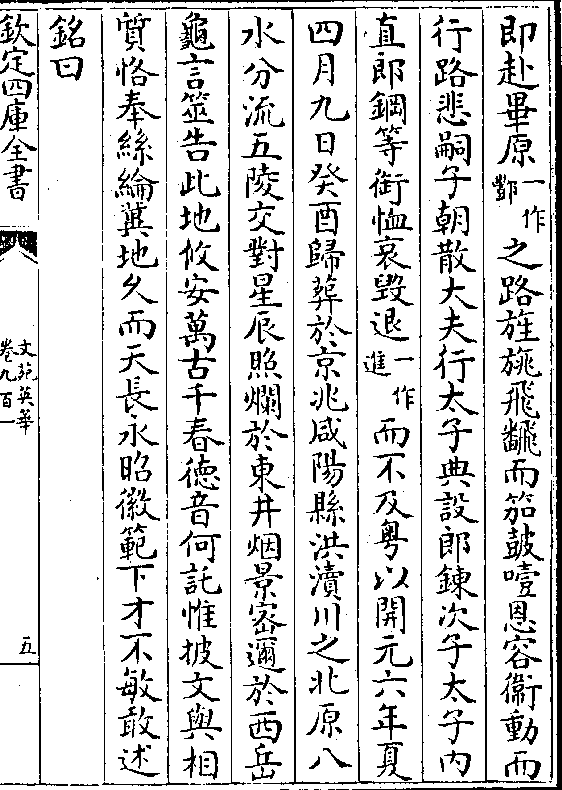 即赴畢原一作酆之路旌旐飛飜而笳鼓噎恩容衛動而
行路悲嗣子朝散大夫行太子典設郎鍊次子太子內
直郎鋼等銜恤哀毀退一作進而不及粤以開元六年夏
四月九日癸酉歸葬於京兆咸陽縣洪瀆川之北原八
水分流五陵交對星辰照爛於東井烟景密邇於西岳
龜言筮告此地攸安萬古千春德音何託惟披文與相
質恪奉絲綸冀地久而天長永昭徽範下才不敏敢述
銘曰
欽定四庫全書
文苑英華
卷九百一
五